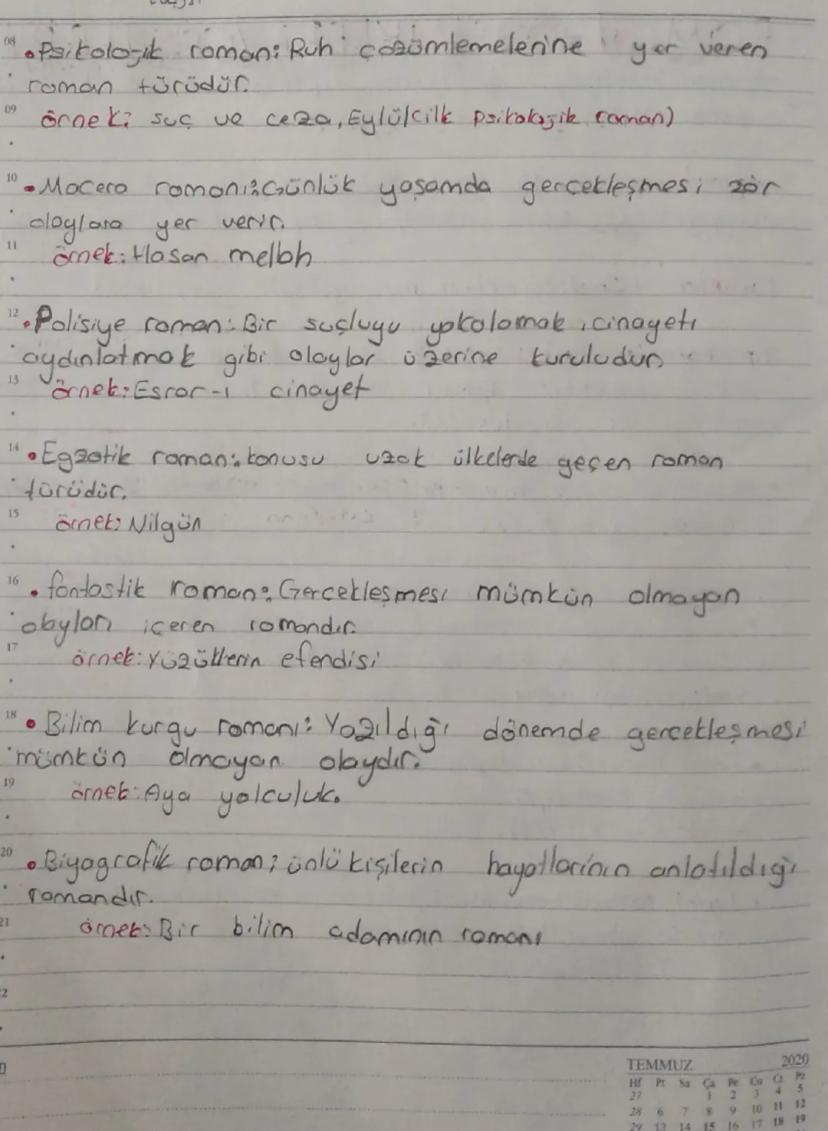 08 • Psikolojik roman: Ruh çözümlemelerine yer veren
roman türüdür.
09 örnek: suç ve ceza, Eylül(ilk psikolojik roman)
10 • Macera romanı: Günlük yaşamda gerçekleşmesi zor
olaylara yer verir.
11 örnek: Hasan melbh
12 • Polisiye roman: Bir suçluyu yakalamak, cinayeti
aydınlatmak gibi olaylar üzerine kuruludur.
13 örnek: Esrar-ı cinayet
14 • Egzotik roman: konusu uzak ülkelerde geçen roman
türüdür.
15 örnek: Nilgün
16 • fantastik roman: Gerçekleşmesi mümkün olmayan
olayları içeren romandır.
17 örnek: Yüzüklerin efendisi
18 • Bilim kurgu romanı: Yazıldığı dönemde gerçekleşmesi
mümkün olmayan olaydır.
19 örnek: Aya yolculuk.
20 • Biyografik roman: ünlü kişilerin hayatlarının anlatıldığı
romandır.
21 örnek: Bir bilim adamının romanı
TEMMUZ 2020
Hf Pt Sa Ça Pe Cu Ct Pz
27 1 2 3 4 5
28 6 7 8 9 10 11 12
29 13 14 15 16 17 18 19